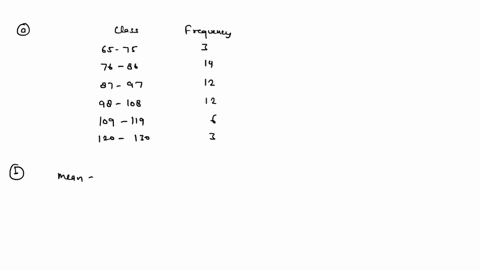 a Class Frequency
65-75 3
76-86 14
87-97 12
98-108 12
109-119 6
120-130 3
I mean -